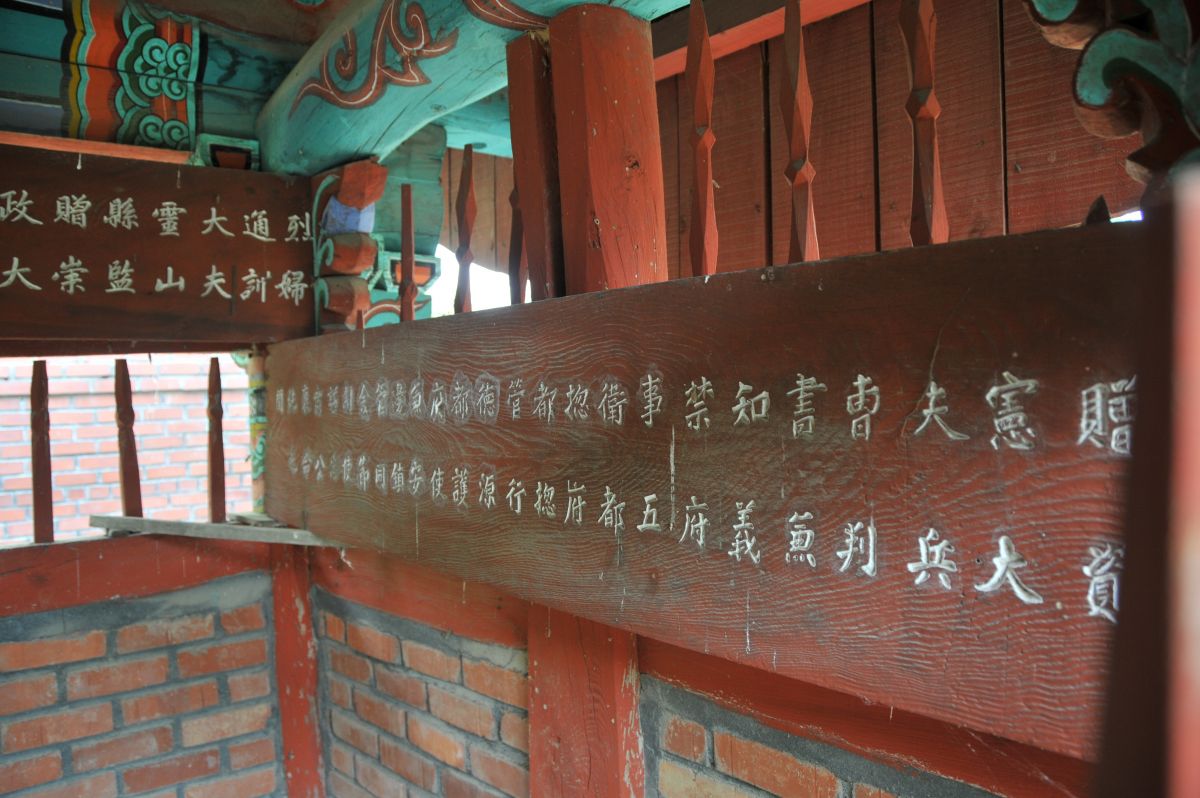 贈資
憲大
夫兵
曺判
書兼
知義
禁府
事五
衛都
摠府
都摠
管行
德源
都護
府使
兼安
邊鎮
管同
僉節
烈婦
通訓
大夫
靈山
縣監
贈崇
政大